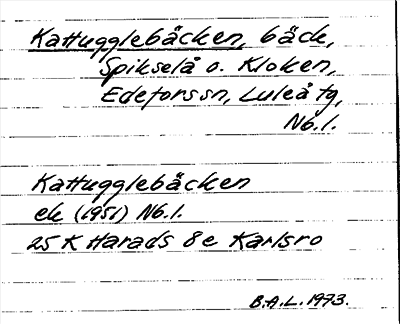 Kattugglebäcken, bäck,
Spikselå o. Kloken,
Edeforssn, Luleå tg,
Nb.l.
Kattugglebäcken
ek (1951) Nb.l.
25 K Harads 8e Karlsro
B.A.L. 1973.